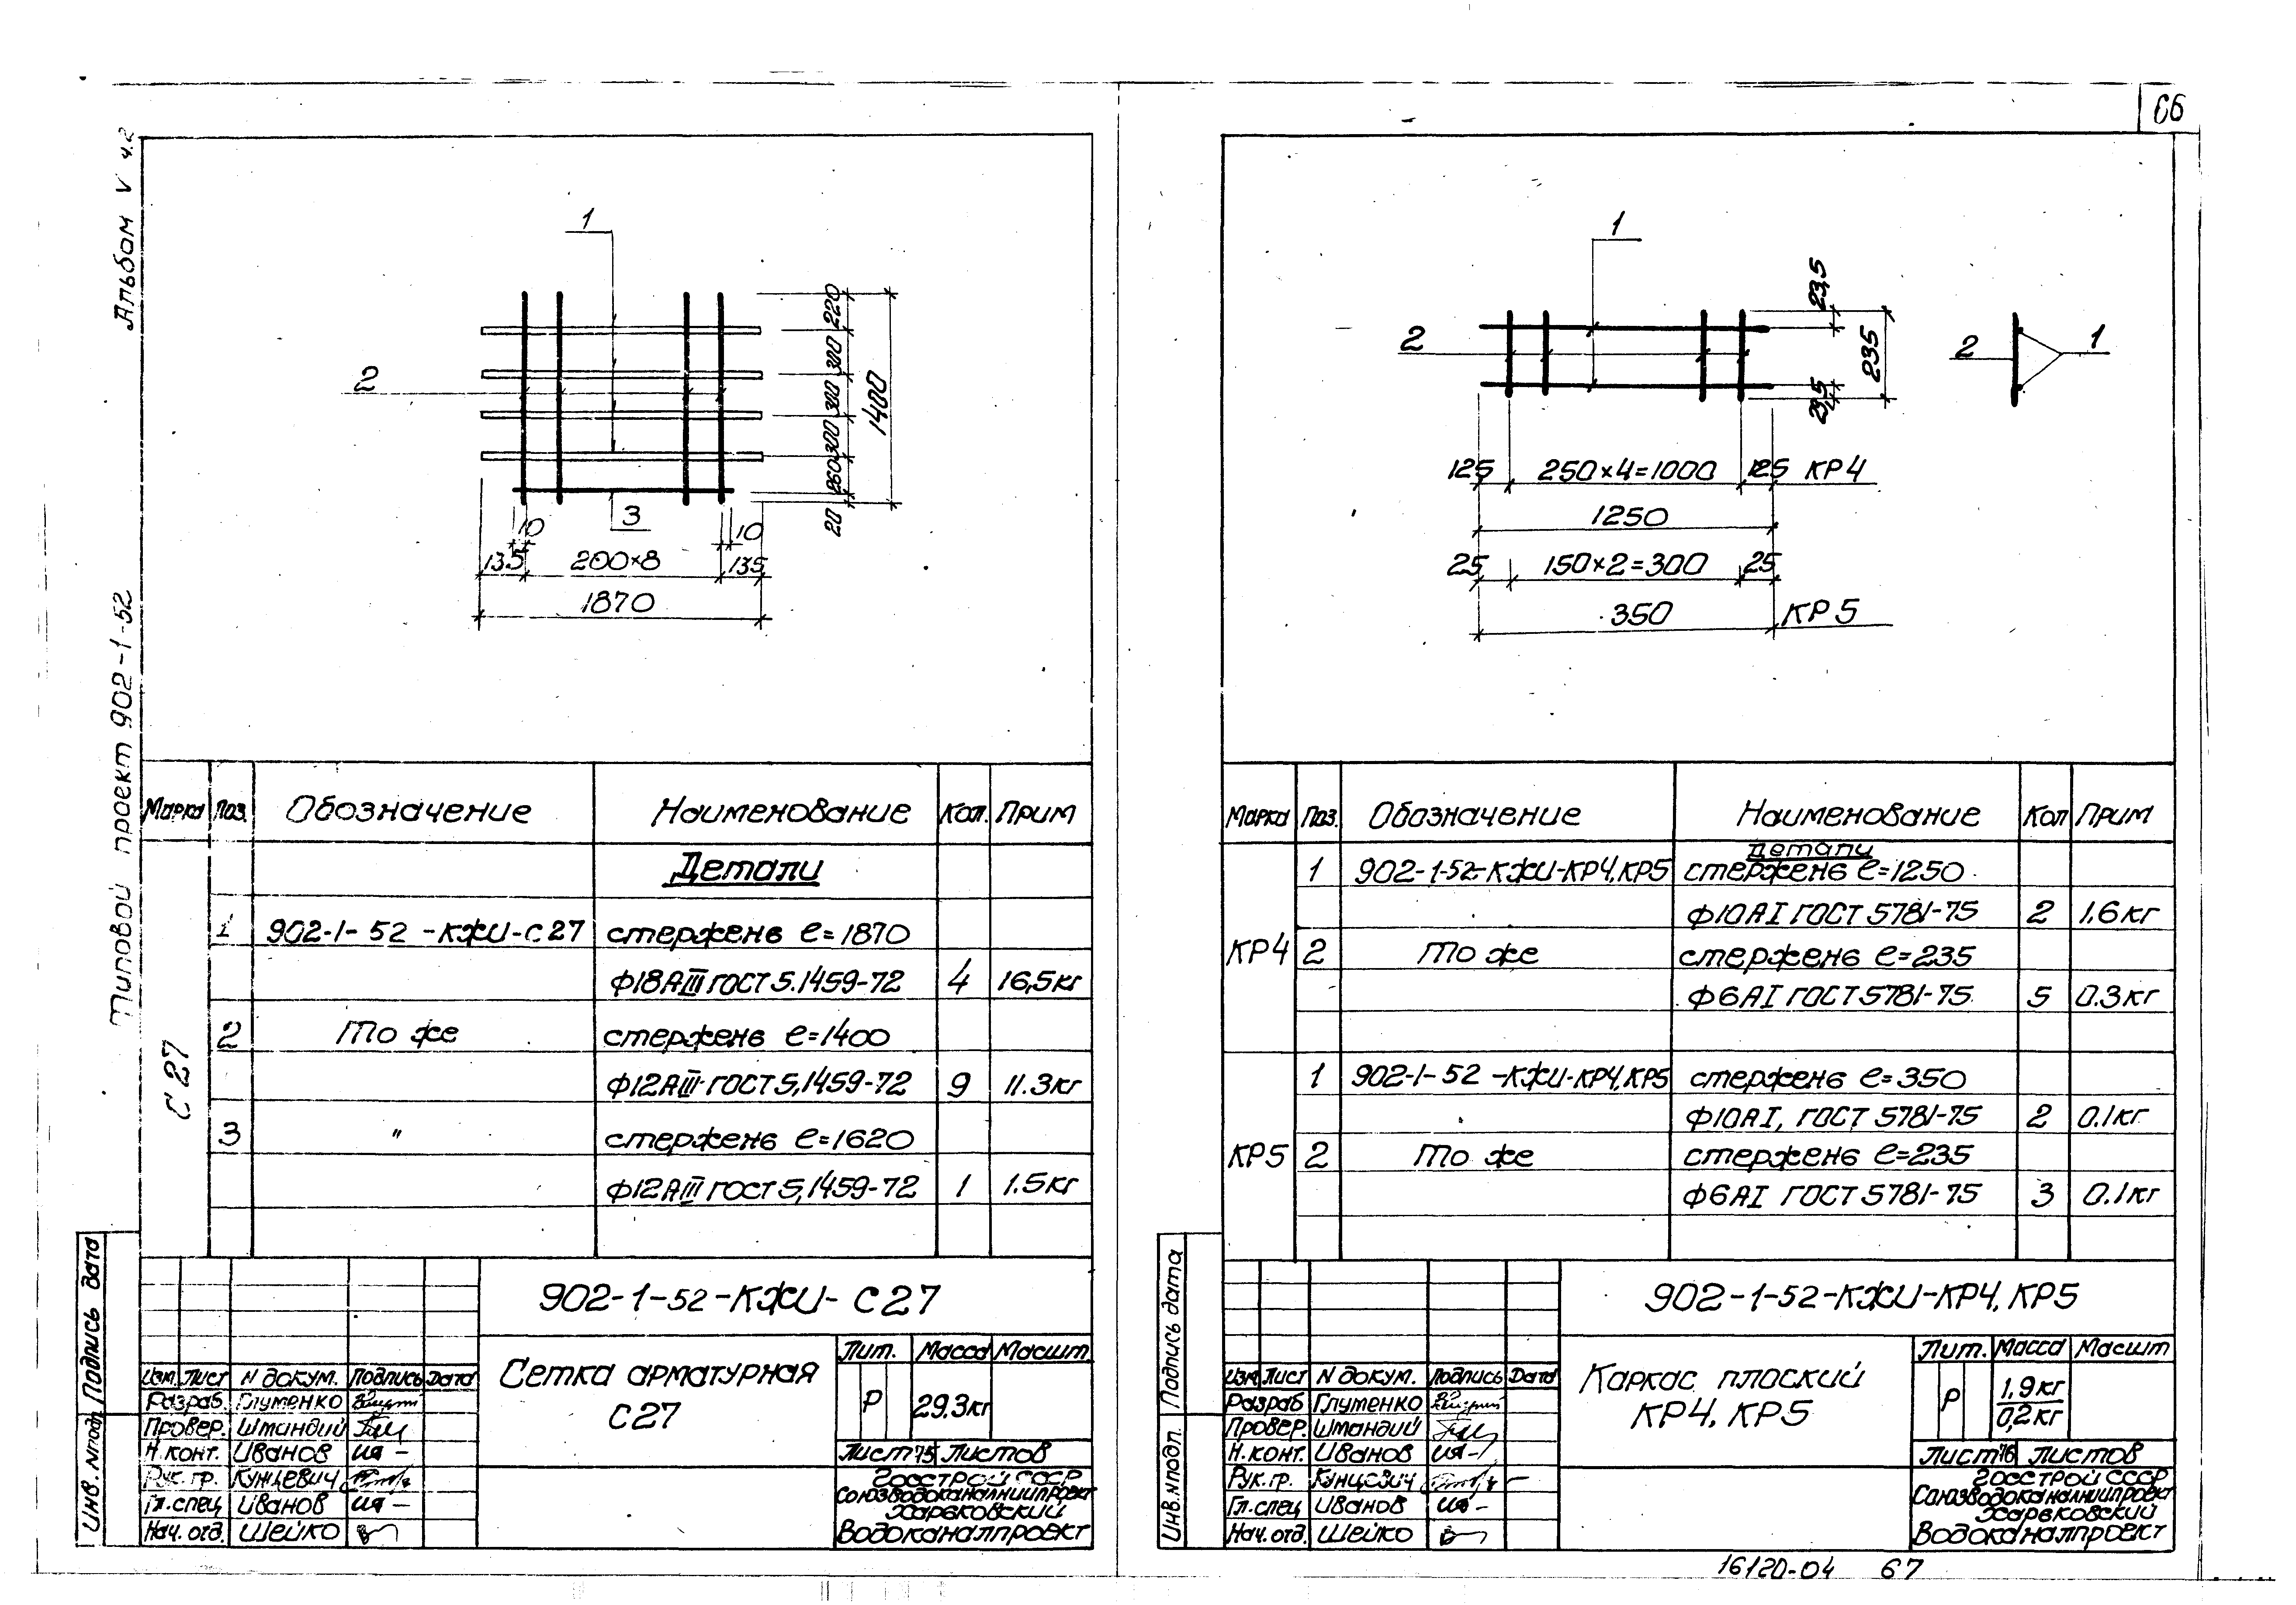 66
Альбом V ч.2
Типовой проект 902-1-52
Инв. № подл. Подпись дата
1
2
3
220
300
300
300
260
20
1400
10
10
135
200×8
135
1870
Марка Поз. Обозначение Наименование Кол. Прим
Детали
С 27
1 902-1-52-КЖИ-С27 стержень ℓ=1870
Ф18АIII ГОСТ 5.1459-72 4 16,5кг
2 То же стержень ℓ=1400
Ф12АIII ГОСТ 5.1459-72 9 11.3кг
3 " стержень ℓ=1620
Ф12АIII ГОСТ 5.1459-72 1 1.5кг
902-1-52-КЖИ-С27
Сетка арматурная
С27
Лит. Масса Масшт.
Р 29.3кг
Лист 75 Листов
Госстрой СССР
Союзводоканалниипроект
Харьковский
Водоканалпроект
Изм. Лист N докум. Подпись Дата
Разраб. Глутенко
Провер. Штандий
Н.конт. Иванов
Рук. гр. Кунцевич
Гл.спец Иванов
Нач. отд. Шейко
1
2
23,5
235
23,5
2
1
125 250×4=1000 125 КР4
1250
25 150×2=300 25
350 КР5
Марка Поз. Обозначение Наименование Кол Прим
Детали
КР4
1 902-1-52-КЖИ-КР4,КР5 стержень ℓ=1250
Ф10АI ГОСТ 5781-75 2 1.6кг
2 То же стержень ℓ=235
Ф6АI ГОСТ 5781-75 5 0.3кг
КР5
1 902-1-52-КЖИ-КР4,КР5 стержень ℓ=350
Ф10АI, ГОСТ 5781-75 2 0.1кг
2 То же стержень ℓ=235
Ф6АI ГОСТ 5781-75 3 0.1кг
Инв. № подл. Подпись дата
902-1-52-КЖИ-КР4, КР5
Каркас плоский
КР4, КР5
Лит. Масса Масшт
Р 1,9кг
0,2кг
Лист 76 Листов
Госстрой СССР
Союзводоканалниипроект
Харьковский
Водоканалпроект
Изм Лист N докум. Подпись Дата
Разраб Глутенко
Провер. Штандий
Н.конт. Иванов
Рук. гр. Кунцевич
Гл.спец Иванов
Нач. отд. Шейко
16120-04 67